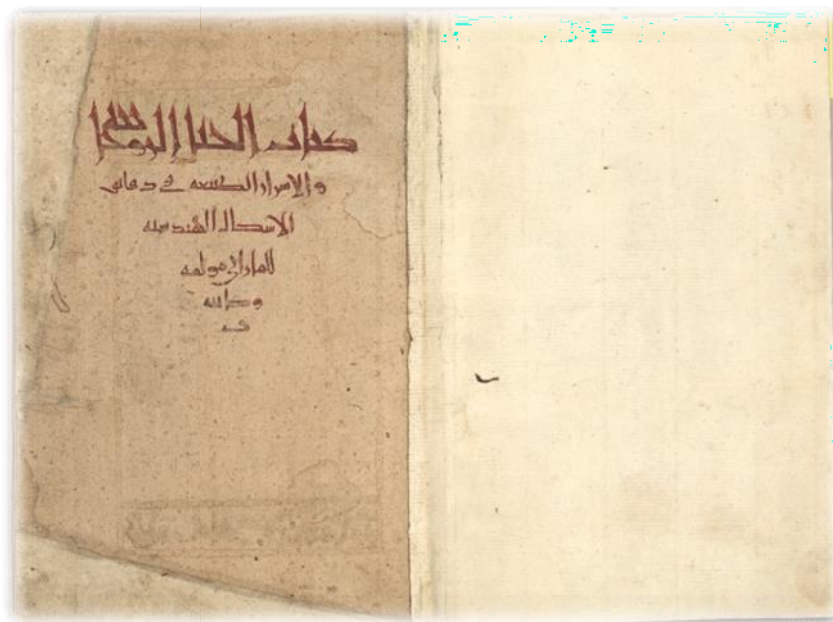 كتاب الحيل الروحانية
والاسرار الطبيعية في دقائق
الاشكال الهندسية
للفارابي مؤلفه
وكاتبه